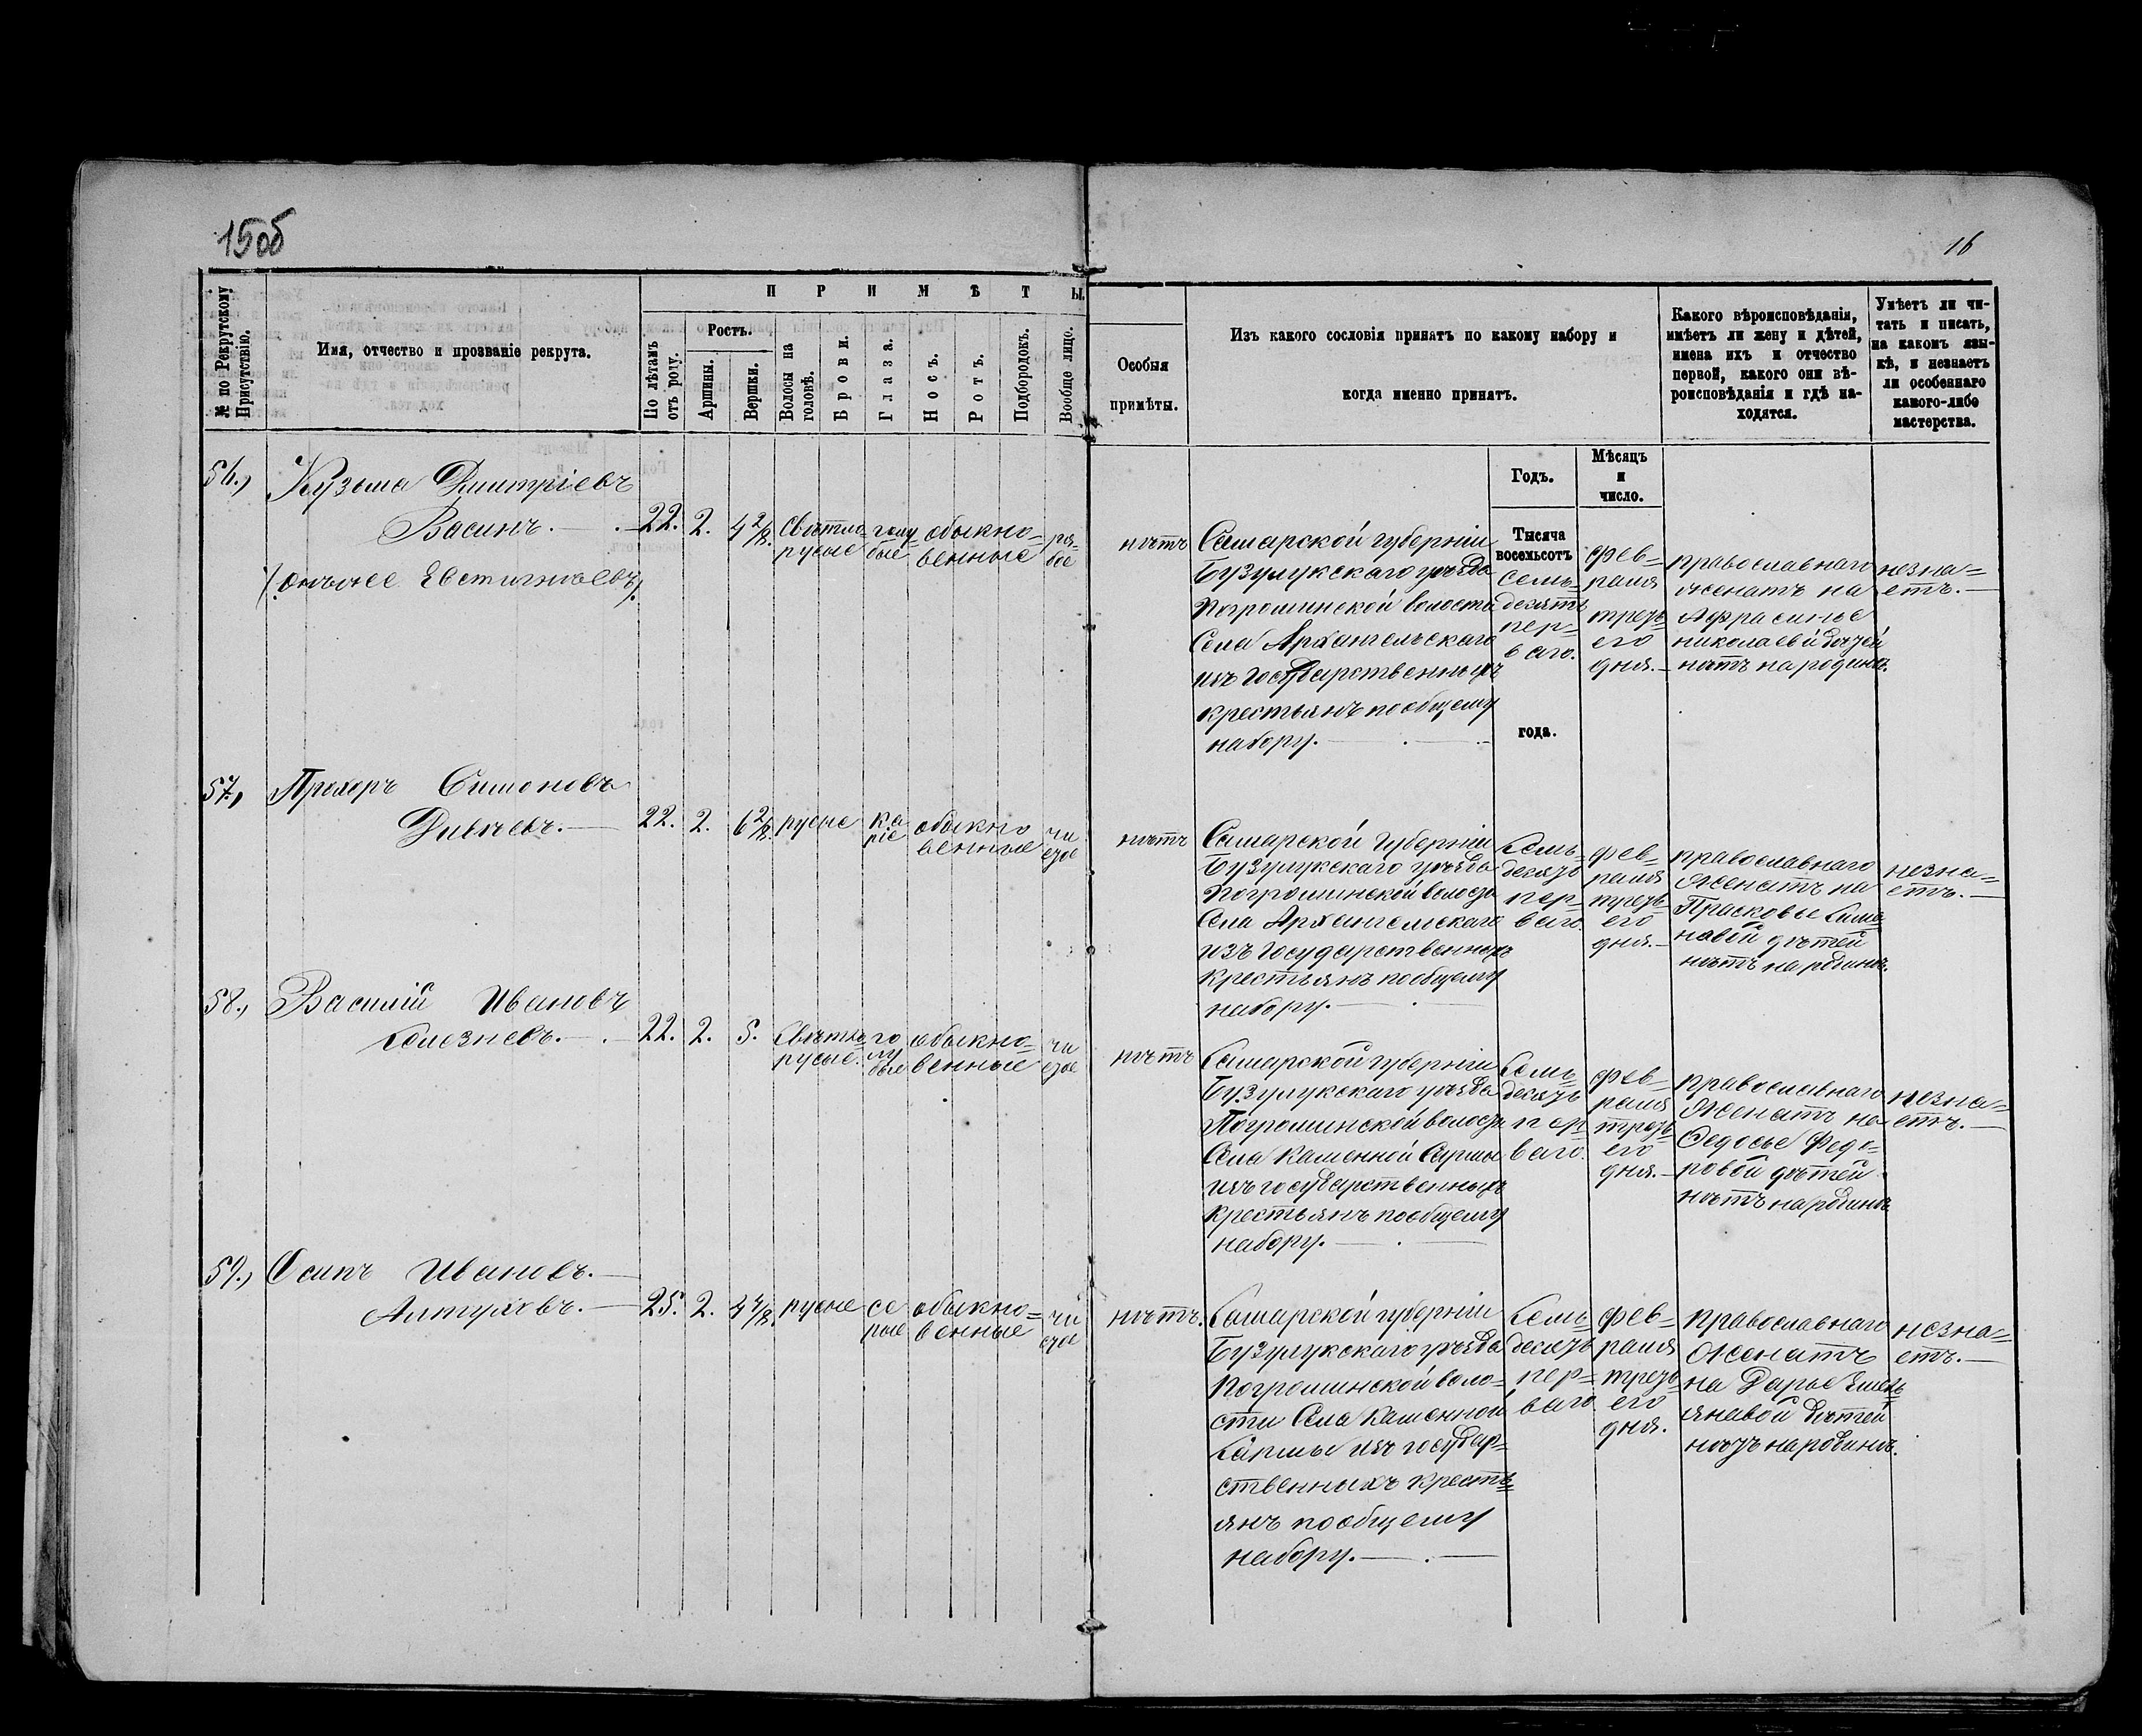 15об
16
№ по Рекрутскому
Присутствію.
Имя, отчество и прозваніе рекрута.
П Р И М Ѣ Т Ы.
По лѣтамъ
отъ роду.
Ростъ.
Аршины.
Вершки.
Волосы на
головѣ.
Брови.
Глаза.
Носъ.
Ротъ.
Подбородокъ.
Вообще лицо.
Особыя
примѣты.
Изъ какого сословія принятъ по какому набору и
когда именно принятъ.
Какого вѣроисповѣданія,
имѣетъ ли жену и дѣтей,
имена ихъ и отчество
первой, какого они вѣ-
роисповѣданія и гдѣ на-
ходятся.
Умѣетъ ли чи-
тать и писать,
на какомъ язы-
кѣ, и незнаетъ
ли особеннаго
какого-либо
мастерства.
Годъ.
Мѣсяцъ
и
число.
56.,
Кузьма Дмитріевъ
Васинъ.
Евстигнѣевъ
22.
2.
4 2/8.
Свѣтло-
русые
голу-
бые
обыкно-
венные
ря-
бое
нѣтъ
Самарской губерніи
Бузулукскаго уѣзда
Погроминской волости
Села Архангельскаго
изъ государственныхъ
крестьянъ по общему
набору.
Тысяча
восемьсотъ
семь-
десятъ
пер-
ваго.
года.
фев-
раля
треть-
его
дня.
православнаго
женатъ на
Афрасинье
николаевой дѣтей
нѣтъ на родинѣ.
незна-
етъ.
57.,
Прохоръ Симоновъ
Дивѣевъ.
22.
2.
6 2/8.
русые
ка
ріе
обыкно
венные
чи
стое
нѣтъ
Самарской губерніи
Бузулукскаго уѣзда
Погроминской волости
Села Архангельскаго
изъ государственныхъ
крестьянъ по общему
набору.
Семь-
десятъ
пер-
ваго.
фев-
раля
треть-
его
дня.
православнаго
женатъ на
Прасковье Симо
новой дѣтей
нѣтъ на родинѣ.
незна-
етъ.
58.,
Василій Ивановъ
Селезневъ.
22.
2.
5.
Свѣтло
русые.
го
лу
бые
обыкно-
венные
чи
стое
нѣтъ
Самарской губерніи
Бузулукскаго уѣзда
Погроминской волости
Села Каменной Сармы
изъ государственныхъ
крестьянъ по общему
набору.
Семь-
десятъ
пер-
ваго.
фев-
раля
треть-
его
дня.
православнаго
женатъ на
Федосье Федо-
ровой дѣтей
нѣтъ на родинѣ
незна-
етъ.
59.,
Осипъ Ивановъ.
Алтуховъ.
25.
2.
4 4/8.
русые
се
рые
обыкно-
венные
чи
стое
нѣтъ.
Самарской губерніи
Бузулукскаго уѣзда
Погроминской воло-
сти Села Каменной
Сармы изъ государ-
ственныхъ кресть-
янъ по общему
набору.
Семь-
десятъ
пер-
ваго
фев-
раля
треть-
его
дня.
православнаго
женатъ
на Дарье Емель
яновой дѣтей
нѣтъ на родинѣ.
незна-
етъ.